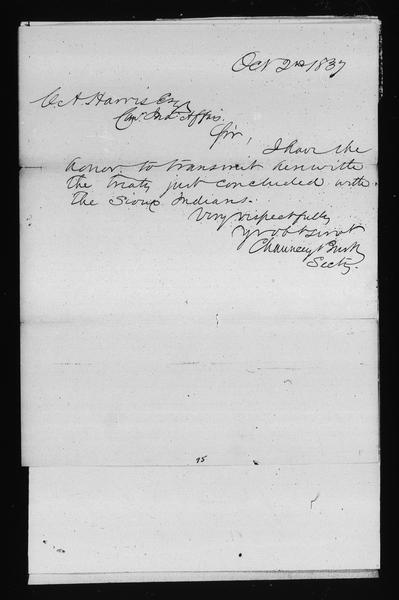 Oct 2nd 1837
C A Harris Esq
Comr Ind. Affrs.
Sir,
I have the
honor to transmit herewith
the treaty just concluded with
the Sioux Indians.
Very respectfully
Yr obt servt
Chauncey Bush
Secty.
75